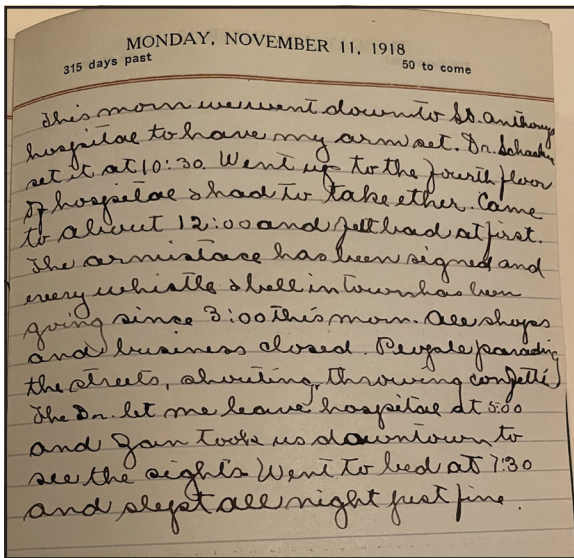 MONDAY, NOVEMBER 11, 1918
315 days past 50 to come
This morn we went down to St. Anthonys
hospital to have my arm set. Dr.
set it at 10:30. Went up to the fourth floor
of hospital & had to take ether. Came
to about 12:00 and felt bad at first.
The armistace has been signed and
every whistle & bell in town has been
going since 3:00 this morn. All shops
and business closed. People parading
the streets, shouting, throwing confetti
The Dr. let me leave hospital at 5:00
and took us downtown to
see the sights. Went to bed at 7:30
and slept all night just fine.